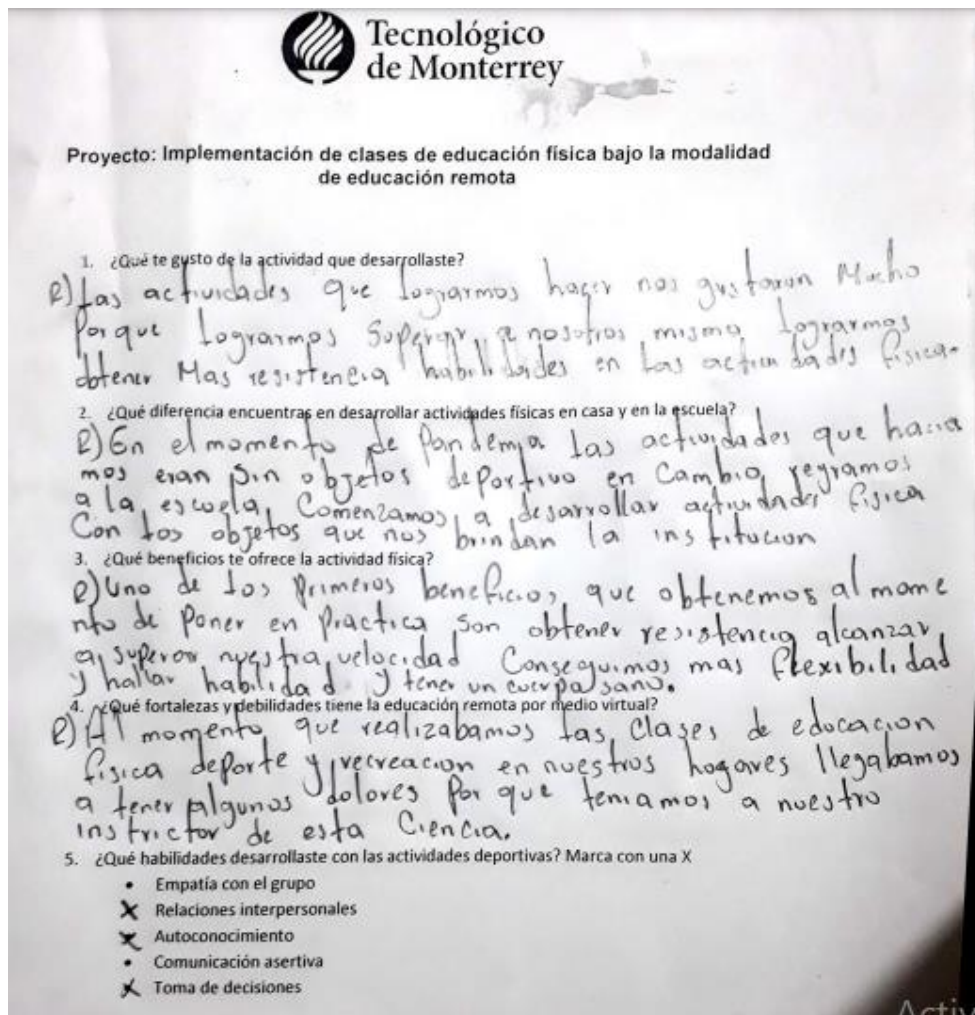 Tecnológico
de Monterrey
Proyecto: Implementación de clases de educación física bajo la modalidad
de educación remota
1. ¿Qué te gusto de la actividad que desarrollaste?
R) Las actividades que lograrmos hacer nos gustaron Mucho
Por que Lograrmos Superar a nosotros mismo lograrmos
obtener Mas resistencia habilidades en Las actividades fisica.
2. ¿Qué diferencia encuentras en desarrollar actividades físicas en casa y en la escuela?
R) En el momento de Pandemia las actividades que hacia
mos eran sin objetos deportivo en Cambio regramos
a la escuela Comenzamos a desarrollar actividades fisica
Con los objetos que nos brindan la institucion
3. ¿Qué beneficios te ofrece la actividad física?
R) Uno de los Primeros beneficios que obtenemos al mome
nto de Poner en Practica son obtener resistencia alcanzar
a superar nuestra velocidad Conseguimos mas flexibilidad
y hallar habilidad y tener un cuerpo sano.
4. ¿Qué fortalezas y debilidades tiene la educación remota por medio virtual?
R) Al momento que realizabamos las Clases de educacion
fisica deporte y recreacion en nuestros hogares llegabamos
a tener algunos dolores Por que teniamos a nuestro
instrictor de esta Ciencia.
5. ¿Qué habilidades desarrollaste con las actividades deportivas? Marca con una X
• Empatía con el grupo
X Relaciones interpersonales
X Autoconocimiento
• Comunicación asertiva
X Toma de decisiones
Activ